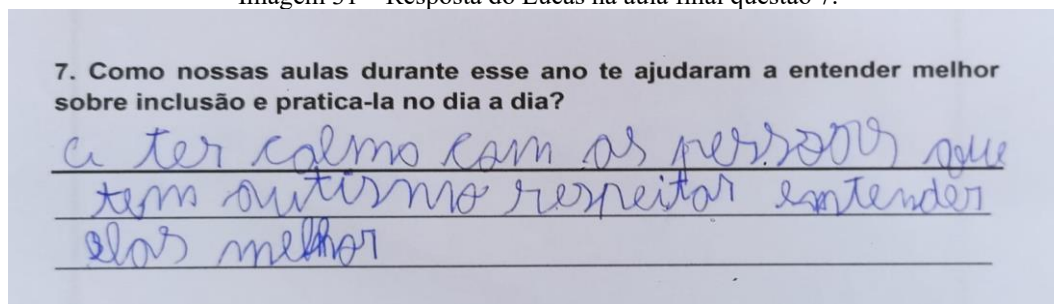 Imagem 31 – Resposta do Lucas na aula final questão 7.
7. Como nossas aulas durante esse ano te ajudaram a entender melhor
sobre inclusão e pratica-la no dia a dia?
a ter calma com as pessoas que
tem autismo respeitar emtender
elas melhor